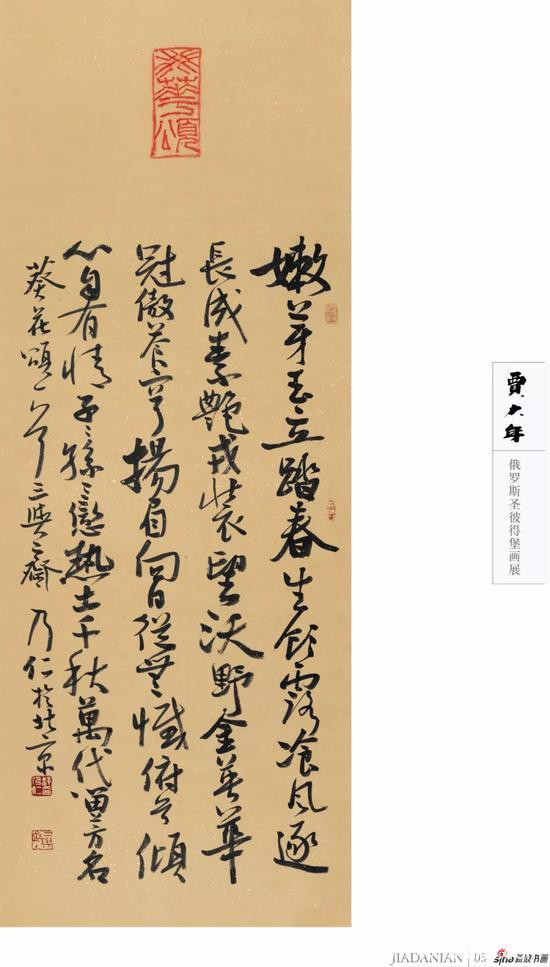 葵華頌
嫩芽玉立踏春生飲露飡風逐
長成素艷戎裝望沃野金英華
冠傲蒼穹揚眉向日從無憾俯首傾
心自有情子子孫孫戀熱土千秋萬代留芳名
葵花頌一首 齋 乃仁於北京
賈大年
俄罗斯圣彼得堡画展
JIADANIAN | 03
sina 新浪书画